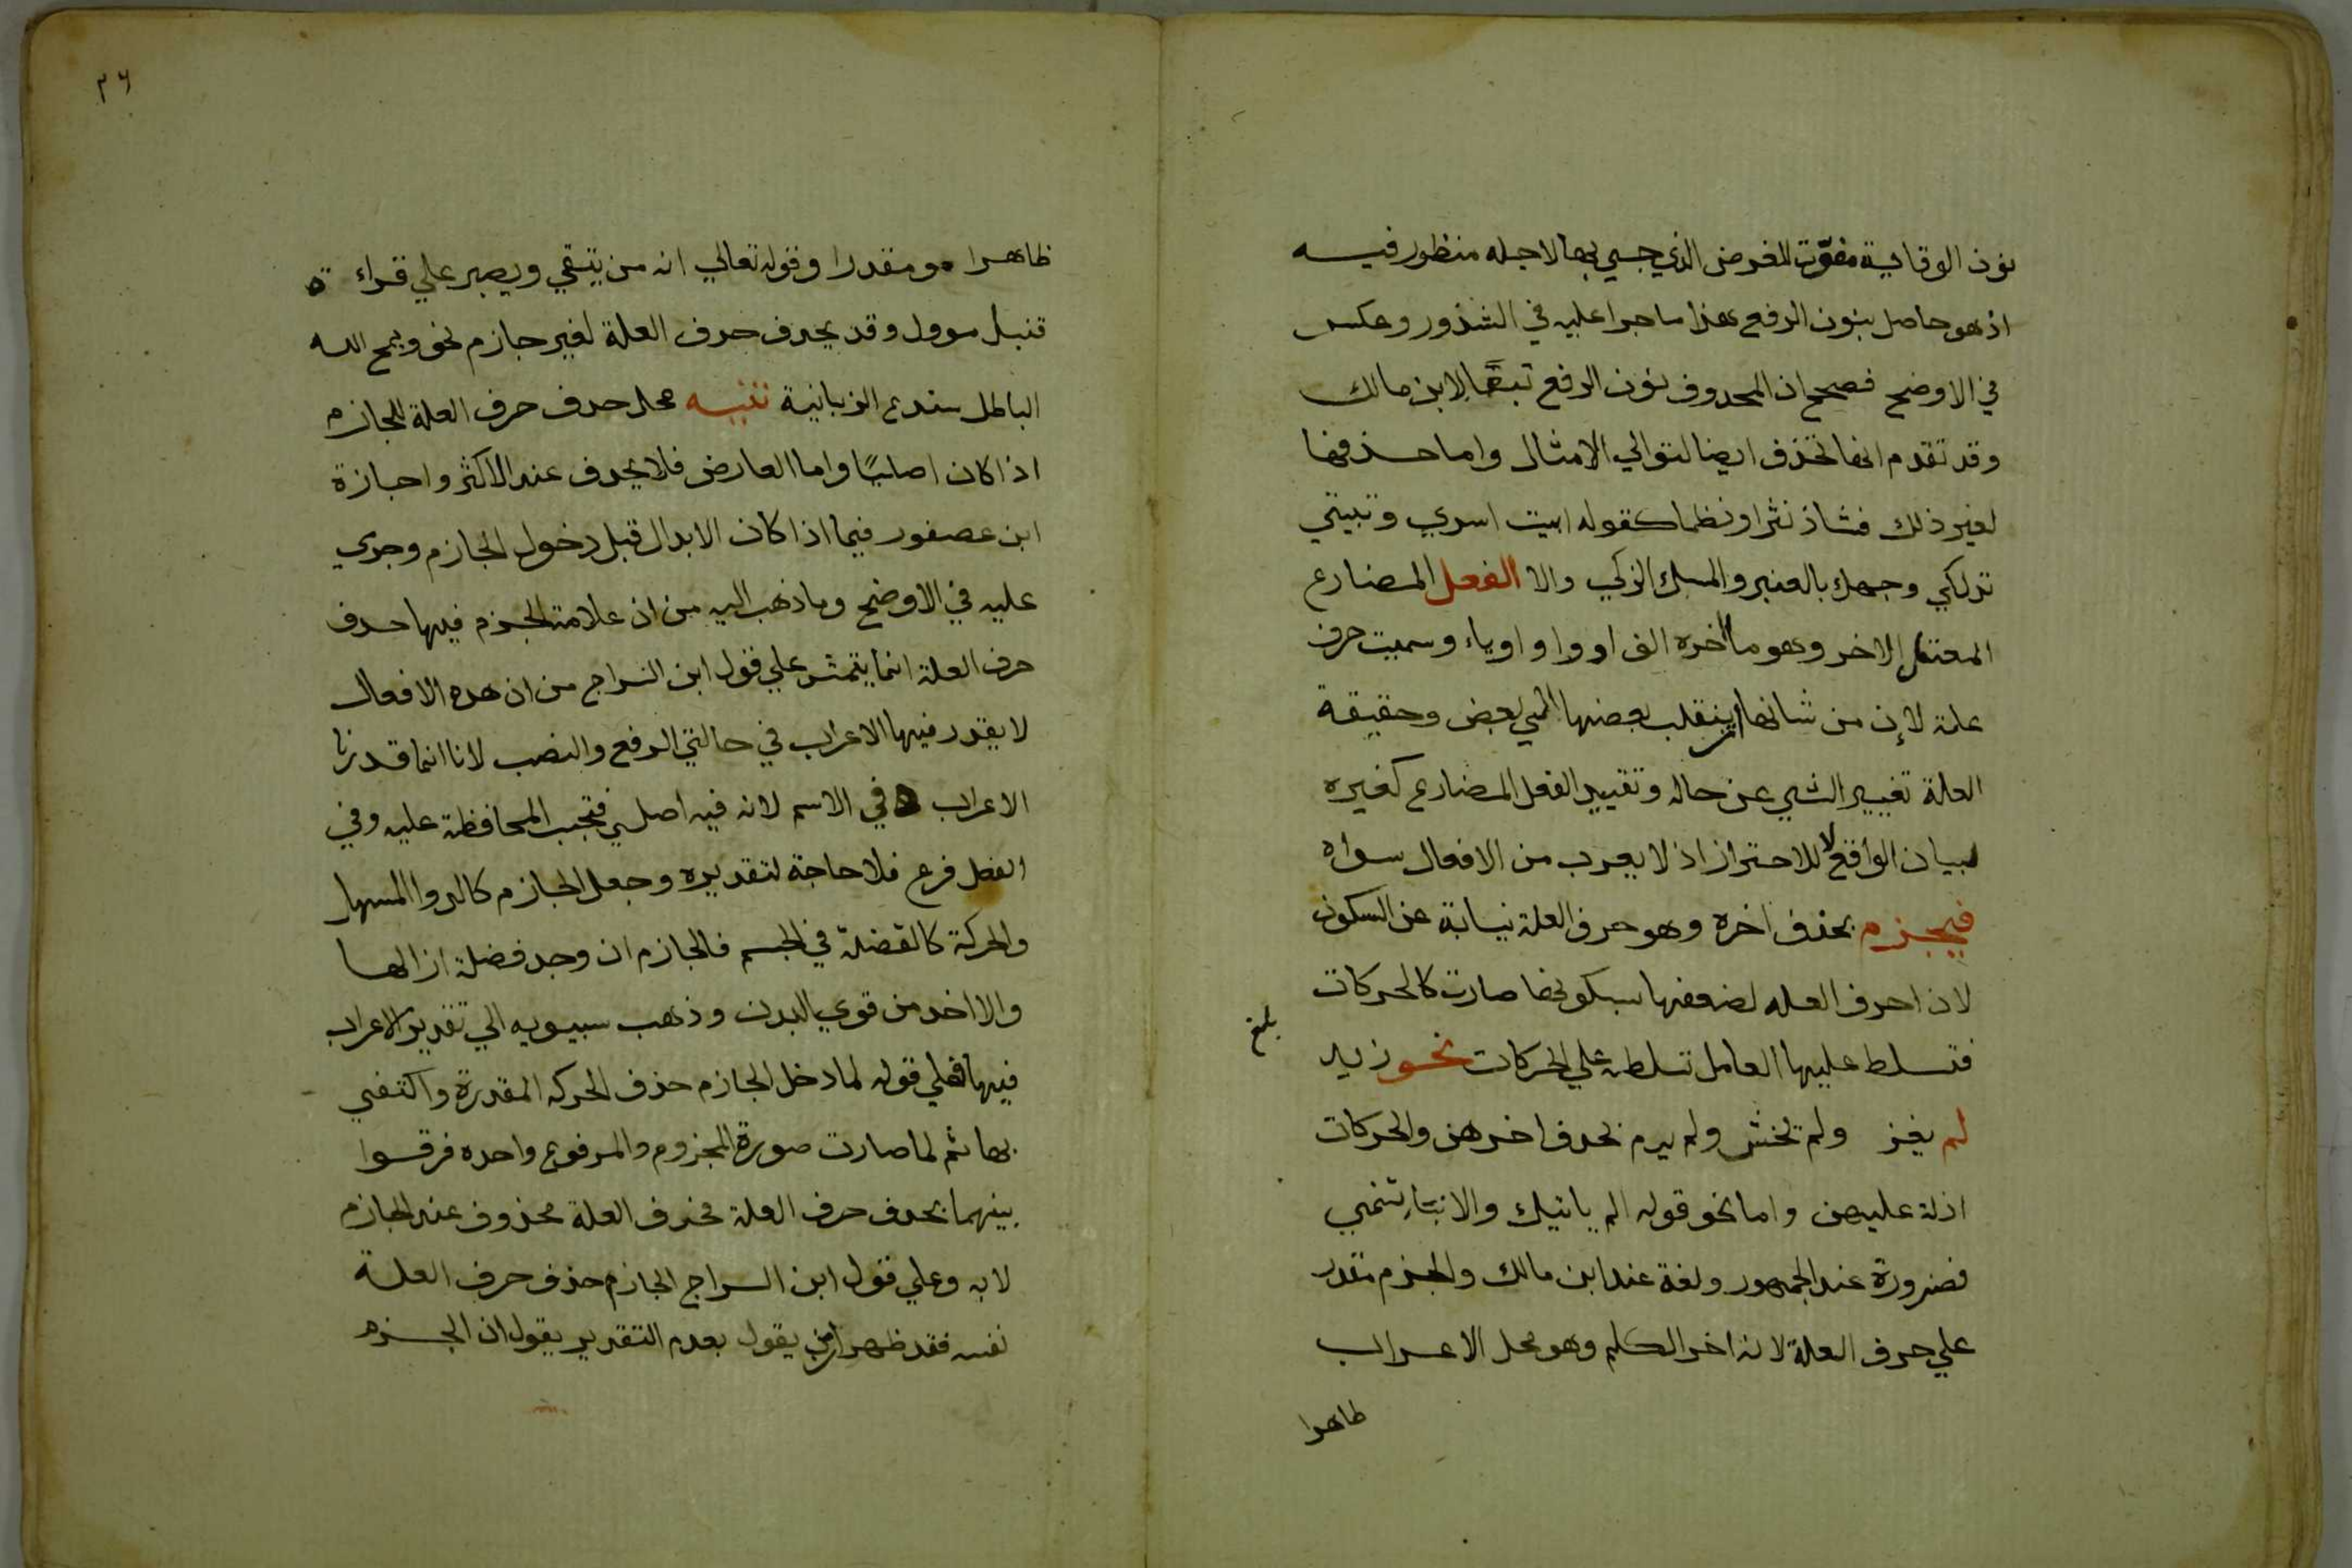 نون الوقاية مفوّت للغرض الذي جيي بها لاجله منظور فيسه
اذ هو حاصل بنون الرفع هذا ما جرا عليه في الشذور وعكس
في الاوضح فصحح ان المحدوف نون الرفع تبعًا لابن مالك
وقد تقدم انها تحذف ايضا لتوالي الامثال واما حذفها
لغير ذلك فشاذ نثرا ونظما كقوله ابيت اسري وتبيتي
تدلكي وجهك بالعنبر والمسك الزكي والا الفعل المضارع
المعتل الاخر وهو ما اخره الف او واو او ياء وسميت حرف
علة لان من شانها ان ينقلب بعضها الي بعض وحقيقة
العلة تغيير الشي عن حاله وتقييد الفعل المضارع كغيره
لبيان الواقع لا للاحتراز اذ لا يعرب من الافعال سواه
فيجزم بحذف اخره وهو حرف العلة نيابة عن السكون
لان احرف العله لضعفها بسكونها صارت كالحركات
فتسلط عليها العامل تسلطه علي الحركات نحو زيد
بلغ
لم يغز ولم يخش ولم يرم بحدف اخرهن والحركات
ادلة عليهن واما نحو قوله الم ياتيك والانبآء تنمي
فضرورة عند الجمهور ولغة عند ابن مالك والجزم مقدر
علي حرف العلة لانه اخر الكلم وهو محل الاعراب
ظاهرا
٣٦
ظاهرا و مقدرا وقوله تعالي انه من يتقي ويصبر علي قراءة
قنبل موول وقد يحدف حرف العلة لغير جازم نحو ويمح الله
الباطل سندع الزبانية تنبيه محل حدف حرف العلة للجازم
اذا كان اصليًا واما العارض فلا يحدف عند الاكثر واجازه
ابن عصفور فيما اذا كان الابدال قبل دخول الجازم وجري
عليه في الاوضح وما ذهب اليه من ان علامة الجزم فيها حدف
حرف العلة انما يتمشى علي قول ابن السراج من ان هده الافعال
لا يقدر فيها الاعراب في حالتي الرفع والنصب لانا انما قدرنا
الاعراب في الاسم لانه فيه اصلي فتجب المحافظة عليه وفي
الفعل فرع فلا حاجة لتقديره وجعل الجازم كالدوا المسهل
والحركة كالفضلة في الجسم فالجازم ان وجد فضلة ازالها
والا اخد من قوي البدن وذهب سيبويه الي تقدير الاعراب
فيها فعلي قوله لما دخل الجازم حذف الحركه المقدرة واكتفي
بها ثم لما صارت صورة المجزوم والمرفوع واحده فرقوا
بينهما بحدف حرف العلة فحرف العلة محذوف عند الجازم
لا به وعلي قول ابن السراج الجازم حذف حرف العلة
نفسه فقد ظهر ان من يقول بعدم التقدير يقول ان الجزم